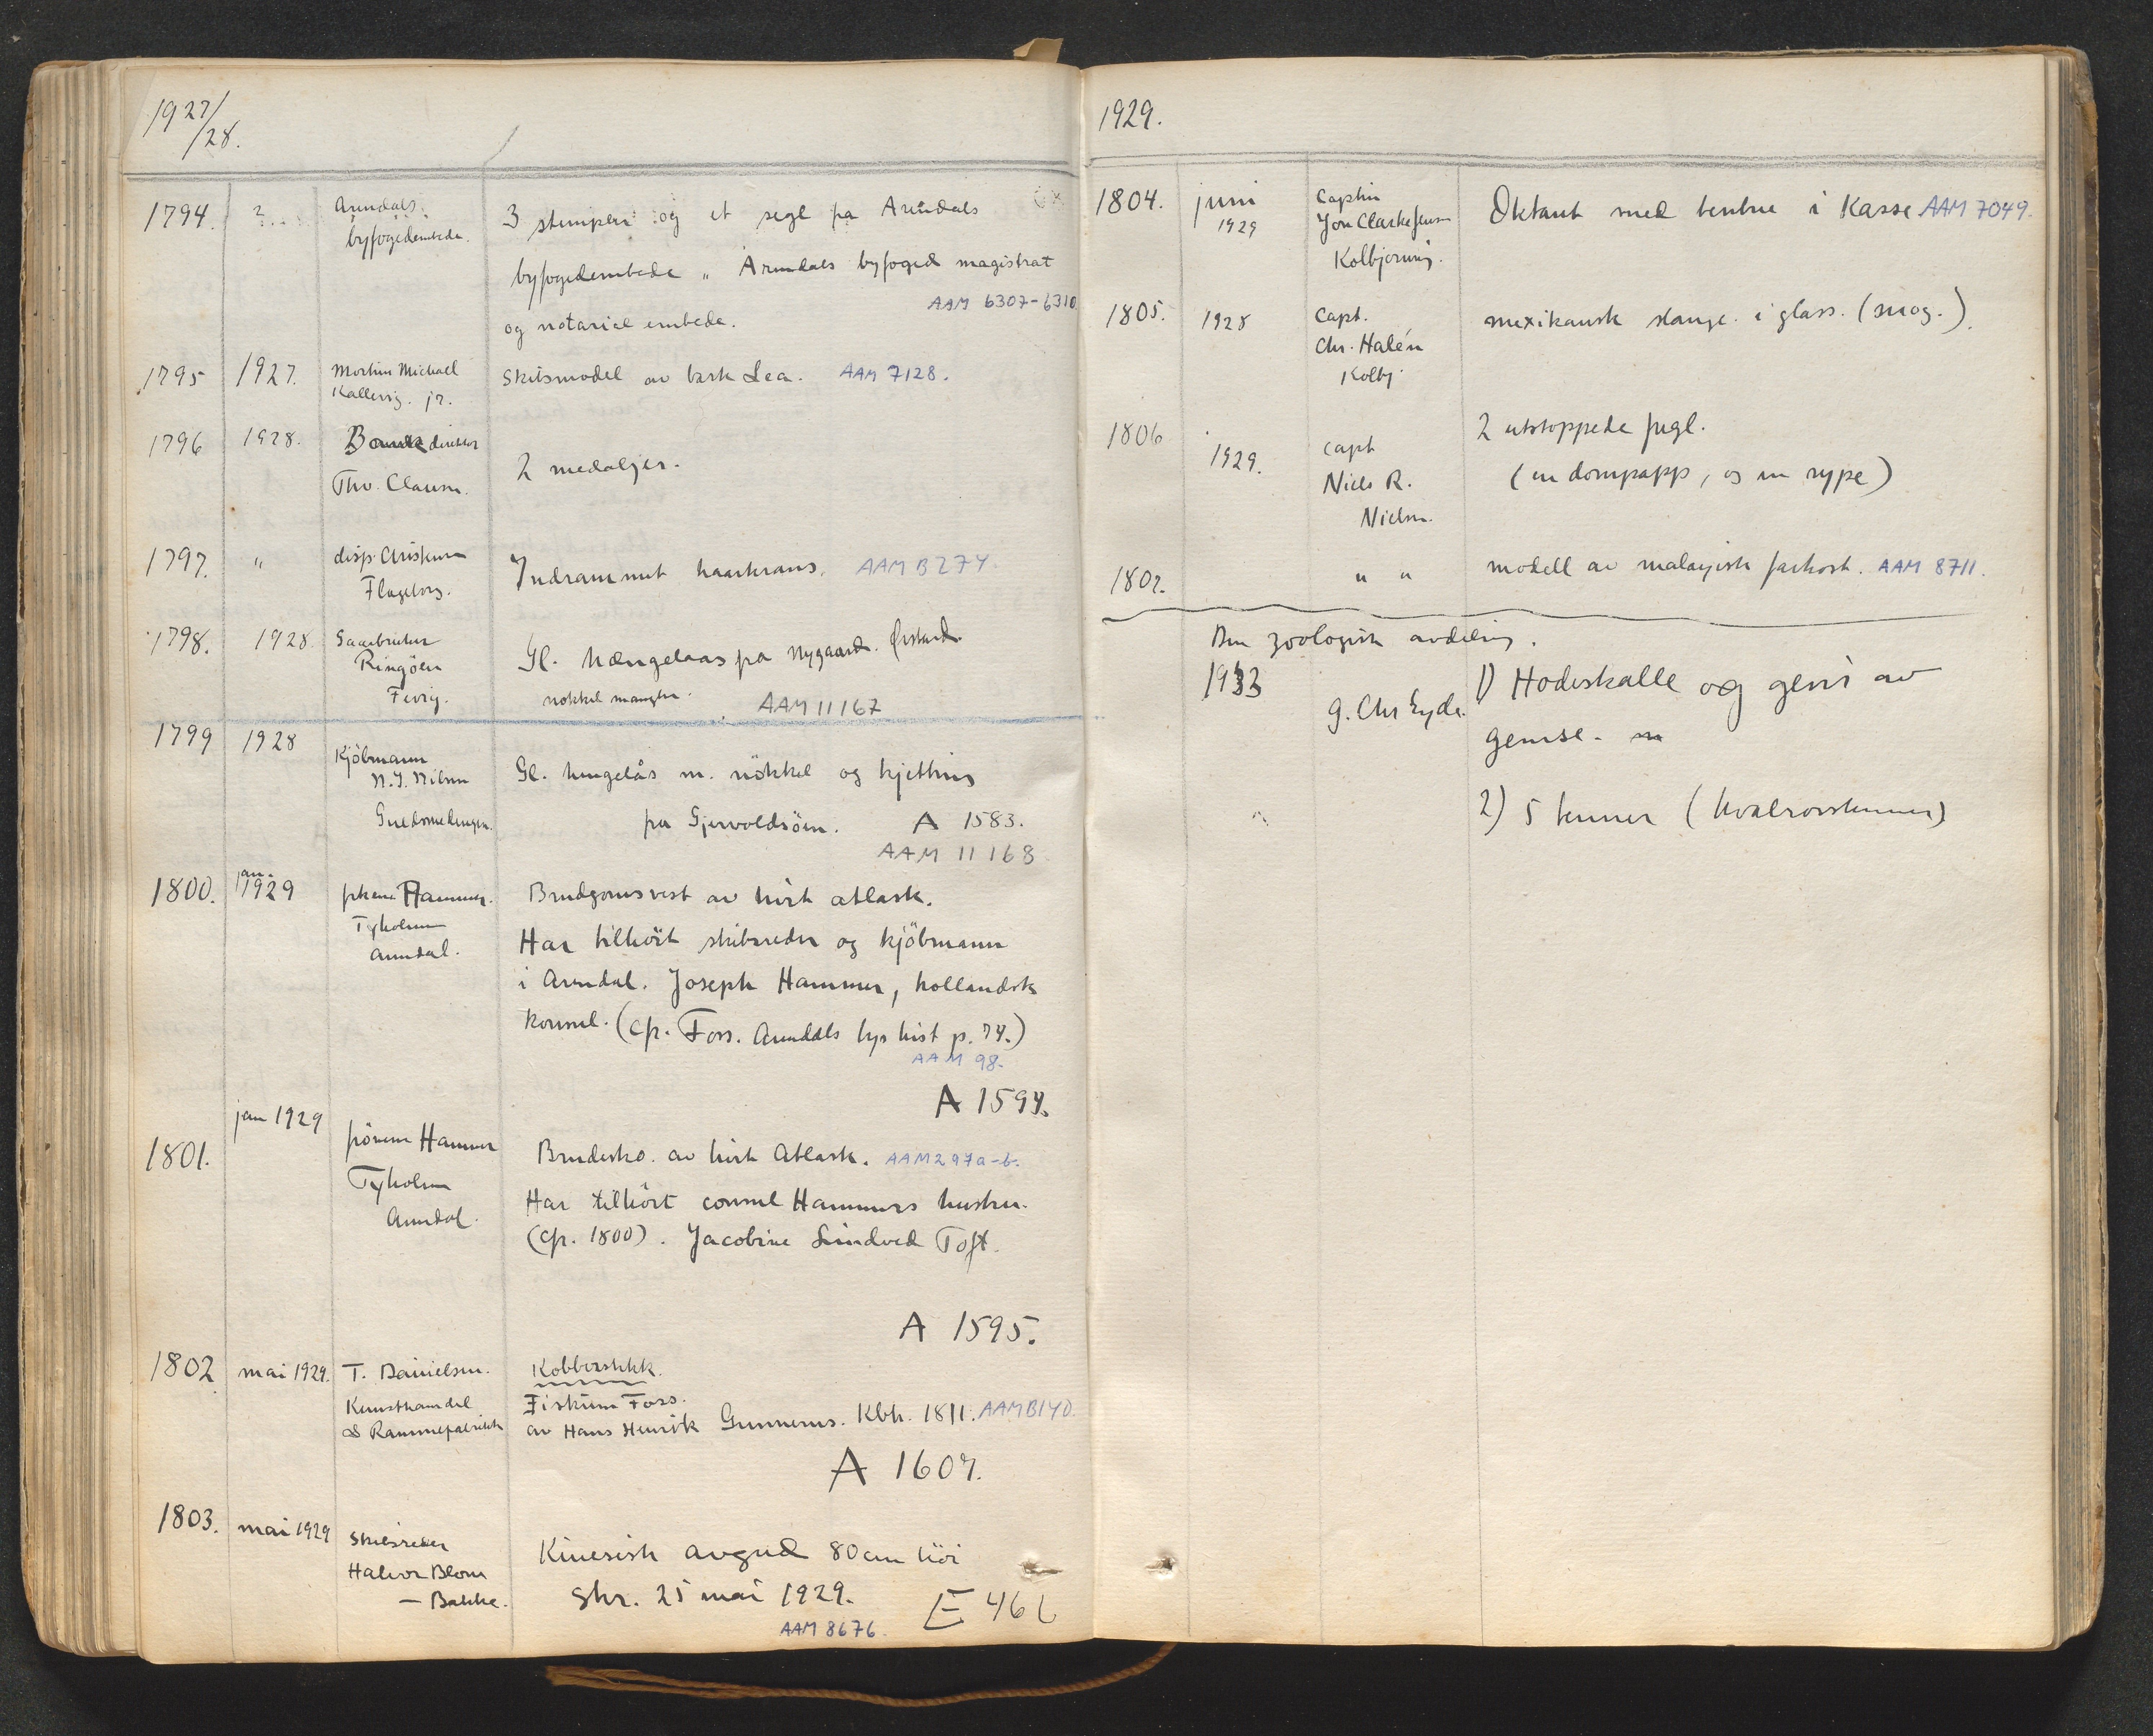 1927/28.
1794. ? Arendals byfogedembede.
3 stempler og et segl fra Arendals
byfogedembede „ Arendals byfoged magistrat
AAM 6307-6310
og notarial embede.
1795 1927. Morten Michael
Kallevig. jr.
Skibsmodel av bark Lea. AAM 7128.
1796 1928. Bankdirektør
Tho. Clausen.
2 medaljer.
1797. " disp. Aristensen
Flageborg.
Indrammet haarkrans. AAM B274.
1798. 1928 Saarbruker
Ringöen
Fevig.
Gl. hængelaas fra Nygaard. Øiestad.
nøkkel mangler. AAM 11167
1799 1928 Kjöbmann
N. J. Nilsen
Guldsmedengen.
Gl. hengelås m. nökkel og kjetting
fra Gjervoldsöen. A 1583.
AAM 11168
1800. jan. 1929 frkene Hammer.
Tyholmen
Arendal.
Brudgomsvest av hvit atlask.
Har tilhört skibsreder og kjöbmann
i Arendal. Joseph Hammer, hollandsk
konsul. (cfr. Foss. Arendals bys hist p. 74.)
AAM 98.
A 1594.
jan 1929
1801. frönene Hammer
Tyholmen
Arendal.
Brudesko. av hvit Atlask. AAM 297a-b.
Har tilhört consul Hammers hustru.
(cfr. 1800). Jacobine Lindved Toft.
A 1595.
1802 mai 1929. T. Danielsen.
Kunsthandel
& Rammefabrikk
Kobberstikk.
Fiskum Foss.
av Hans Henrik Gunnerus. Kbh. 1811. AAM B140.
A 1607.
1803. mai 1929 Skibsreder
Halvor Blom
– Bakke.
Kinesisk avgud 80 cm höi
Skr. 25 mai 1929. E 466
AAM 8676.
1929.
1804. juni
1929
Captein
Jon Clarke Jensen
Kolbjørnsvig.
Oktant med tentrue i Kasse AAM 7049.
1805. 1928 Capt.
Chr. Halén
Kolbj.
mexikansk slange. i glass. (snog.).
1806 1929. capt
Niels R.
Nielsen.
2 utstoppede fugl.
(en dompapp, og en rype)
1807. " " modell av malayisk farkost. AAM 8711.
Den zoologisk avdeling.
1933 G. Chr Eyde.
1) Hodeskalle og gevir av
gemse.
2) 5 tenner (hvalrosstenner)